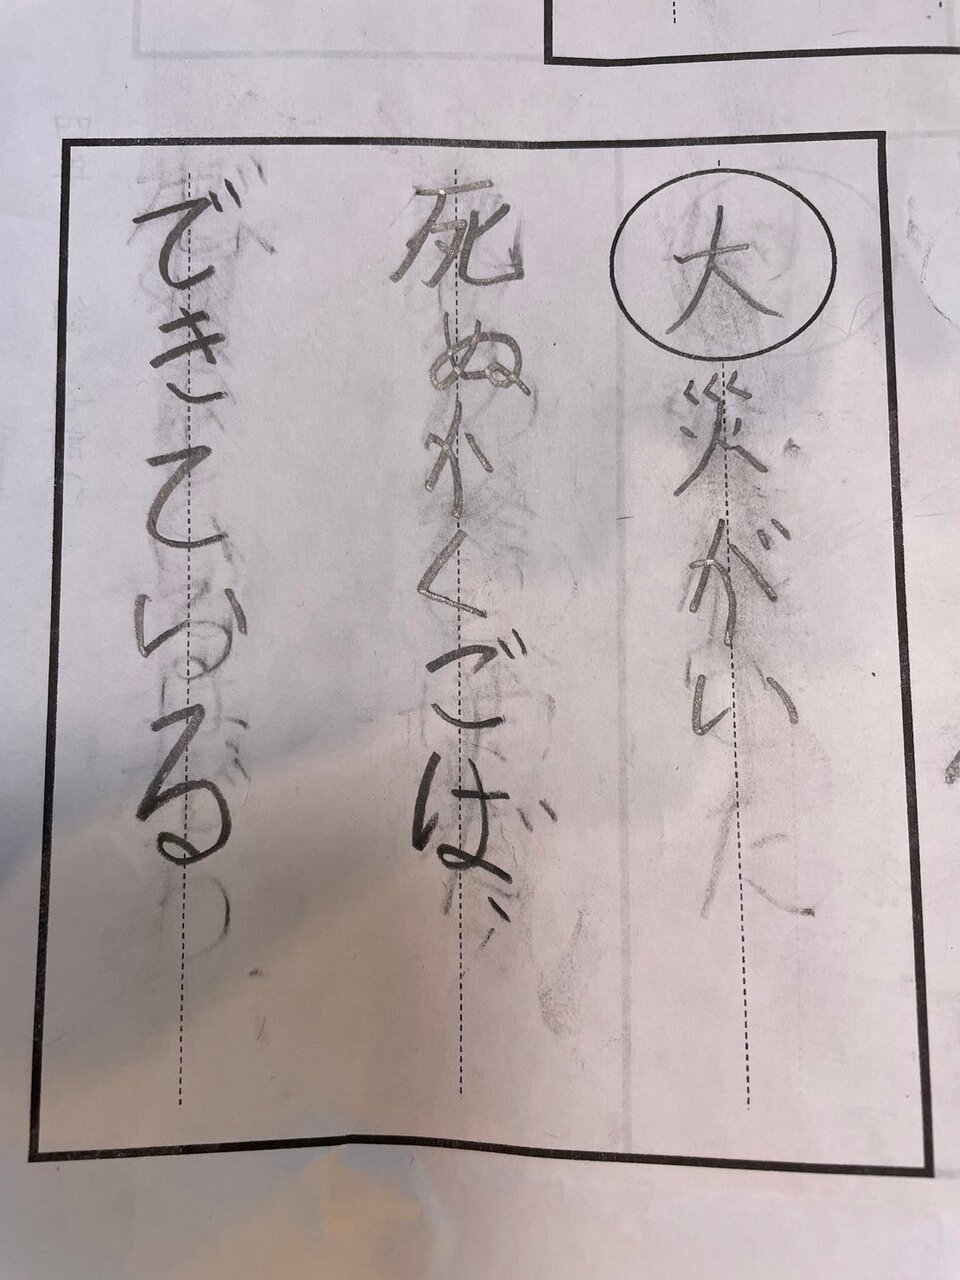 大災がい
死ぬかくごは゛
できている